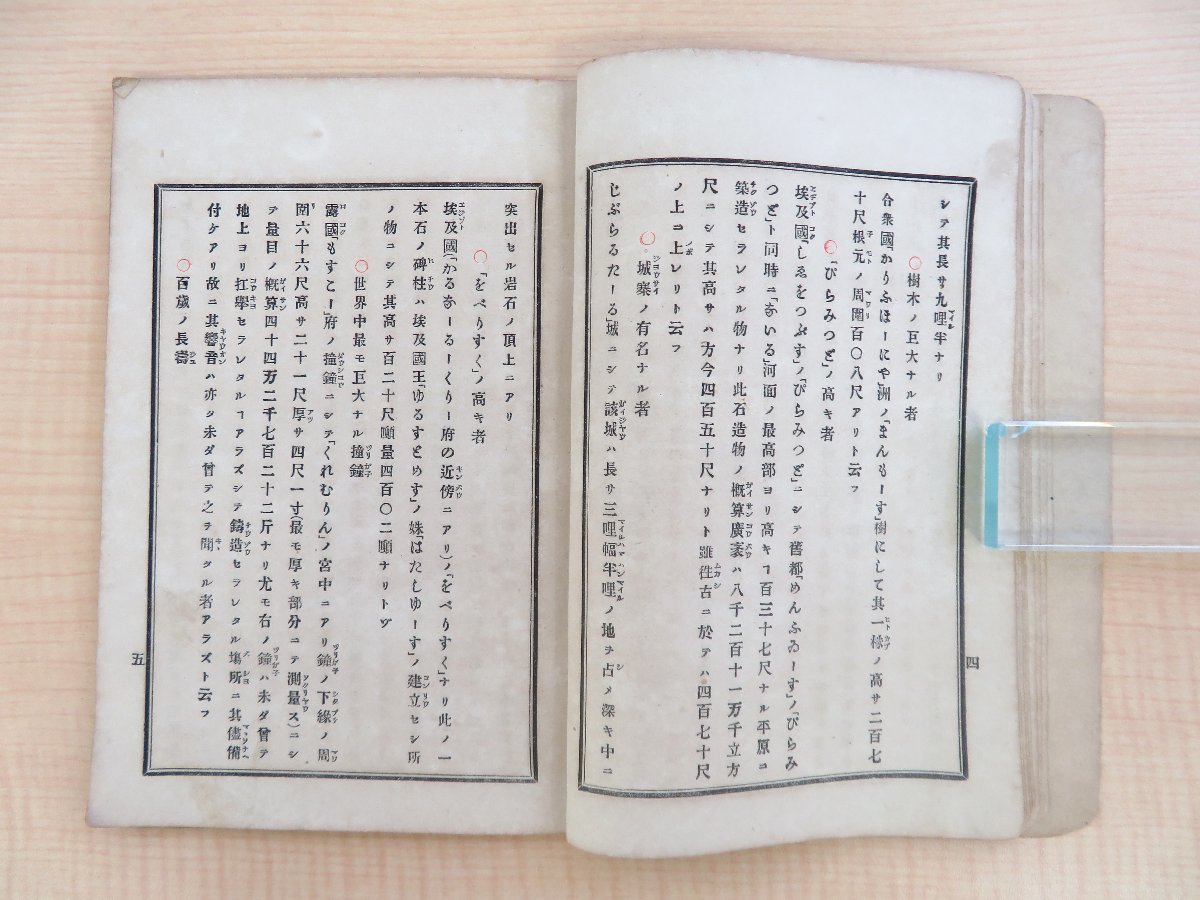 シテ其長サ九哩半ナリ
〇樹木ノ巨大ナル者
合衆國「かりふほーにや」洲ノ「まんもーす」樹にして其一樣ノ高サ二百七
十尺根元ノ周圍百〇八尺アリト云フ
〇「ぴらみつど」ノ高キ者
埃及國「しゑをつぷす」ノ「ぴらみつど」ニシテ舊都「めんふゐーす」ノ「ぴらみ
つど」ト同時ニ「ないる」河面ノ最高部ヨリ高キヿ百三十七尺ナル平原ニ
築造セラレタル物ナリ此石造物ノ概算廣袤ハ八千二百十一万千立方
尺ニシテ其高サハ方今四百五十尺ナリト雖徃古ニ於テハ四百七十尺
ノ上ニ上レリト云フ
〇城寨ノ有名ナル者
じぶらるたーる」城ニシテ該城ハ長サ三哩幅半哩ノ地ヲ占メ深キ中ニ
四
突出セル岩石ノ頂上ニアリ
〇「をべりすく」ノ高キ者
埃及國(「かるなーるーくりー府の近傍ニアリ)ノ「をべりすく」ナリ此ノ一
本石ノ碑柱ハ埃及國王「ゆるすとめす」ノ姝「はたしゆーす」ノ建立セシ所
ノ物ニシテ其高サ百二十尺噸量四百〇二噸ナリトゾ
〇世界中最モ巨大ナル撞鐘
露國「もすこー」府ノ撞鐘ニシテ「くれむりん」ノ宮中ニアリ鐘ノ下緣ノ周
圍六十六尺高サ二十一尺厚サ四尺一寸最モ厚キ部分ニテ測量ス)ニシ
テ量目ノ概算四十四万二千七百二十二斤ナリ尤モ右ノ鐘ハ未ダ曾テ
地上ヨリ扛擧セラレタルヿアラズシテ鑄造セラレタル塲所ニ其儘備
付ケアリ故ニ其響音ハ亦タ未ダ曾テ之ヲ聞タル者アラズト云フ
〇百歲ノ長壽
五